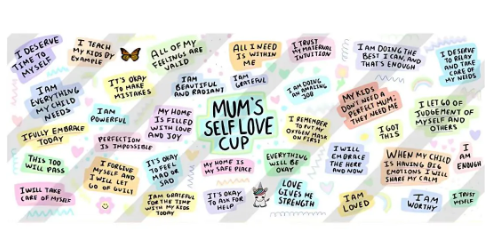 I DESERVE
TIME TO
MYSELF
I TEACH
MY KIDS BY
EXAMPLE
ALL OF MY
FEELINGS ARE
VALID
ALL I NEED
IS WITHIN
ME
I TRUST
MY MATERNAL
INTUITION
I AM DOING THE
BEST I CAN, AND
THAT'S ENOUGH
I DESERVE
TO RELAX
AND TAKE
CARE OF MY
NEEDS
I AM
EVERYTHING
MY CHILD
NEEDS
IT'S OKAY
TO MAKE
MISTAKES
I AM
BEAUTIFUL
AND RADIANT
I AM
GRATEFUL
I AM DOING
AN AMAZING
JOB
MY KIDS
DON'T NEED A
PERFECT MUM,
THEY NEED ME
I LET GO OF
JUDGEMENT OF
MYSELF AND
OTHERS
I AM
POWERFUL
MY HOME
IS FILLED
WITH LOVE
AND JOY
MUM'S
SELF LOVE
CUP
I REMEMBER
TO PUT MY
OXYGEN MASK
ON FIRST
I GOT
THIS
I FULLY EMBRACE
TODAY
PERFECTION
IS IMPOSSIBLE
THIS TOO
WILL PASS
I FORGIVE
MYSELF AND
I WILL LET
GO OF GUILT
IT'S OKAY
TO FEEL
MAD OR
SAD
MY HOME IS
MY SAFE PLACE
EVERYTHING
WILL BE
OKAY
I WILL
EMBRACE
THE HERE
AND NOW
WHEN MY CHILD
IS HAVING BIG
EMOTIONS I WILL
SHARE MY CALM
I
AM
ENOUGH
I WILL TAKE
CARE OF MYSELF
I AM GRATEFUL
FOR THE TIME
WITH MY KIDS
TODAY
IT'S OKAY
TO ASK FOR
HELP
LOVE
GIVES ME
STRENGTH
I AM
LOVED
I AM
WORTHY
I TRUST
MYSELF